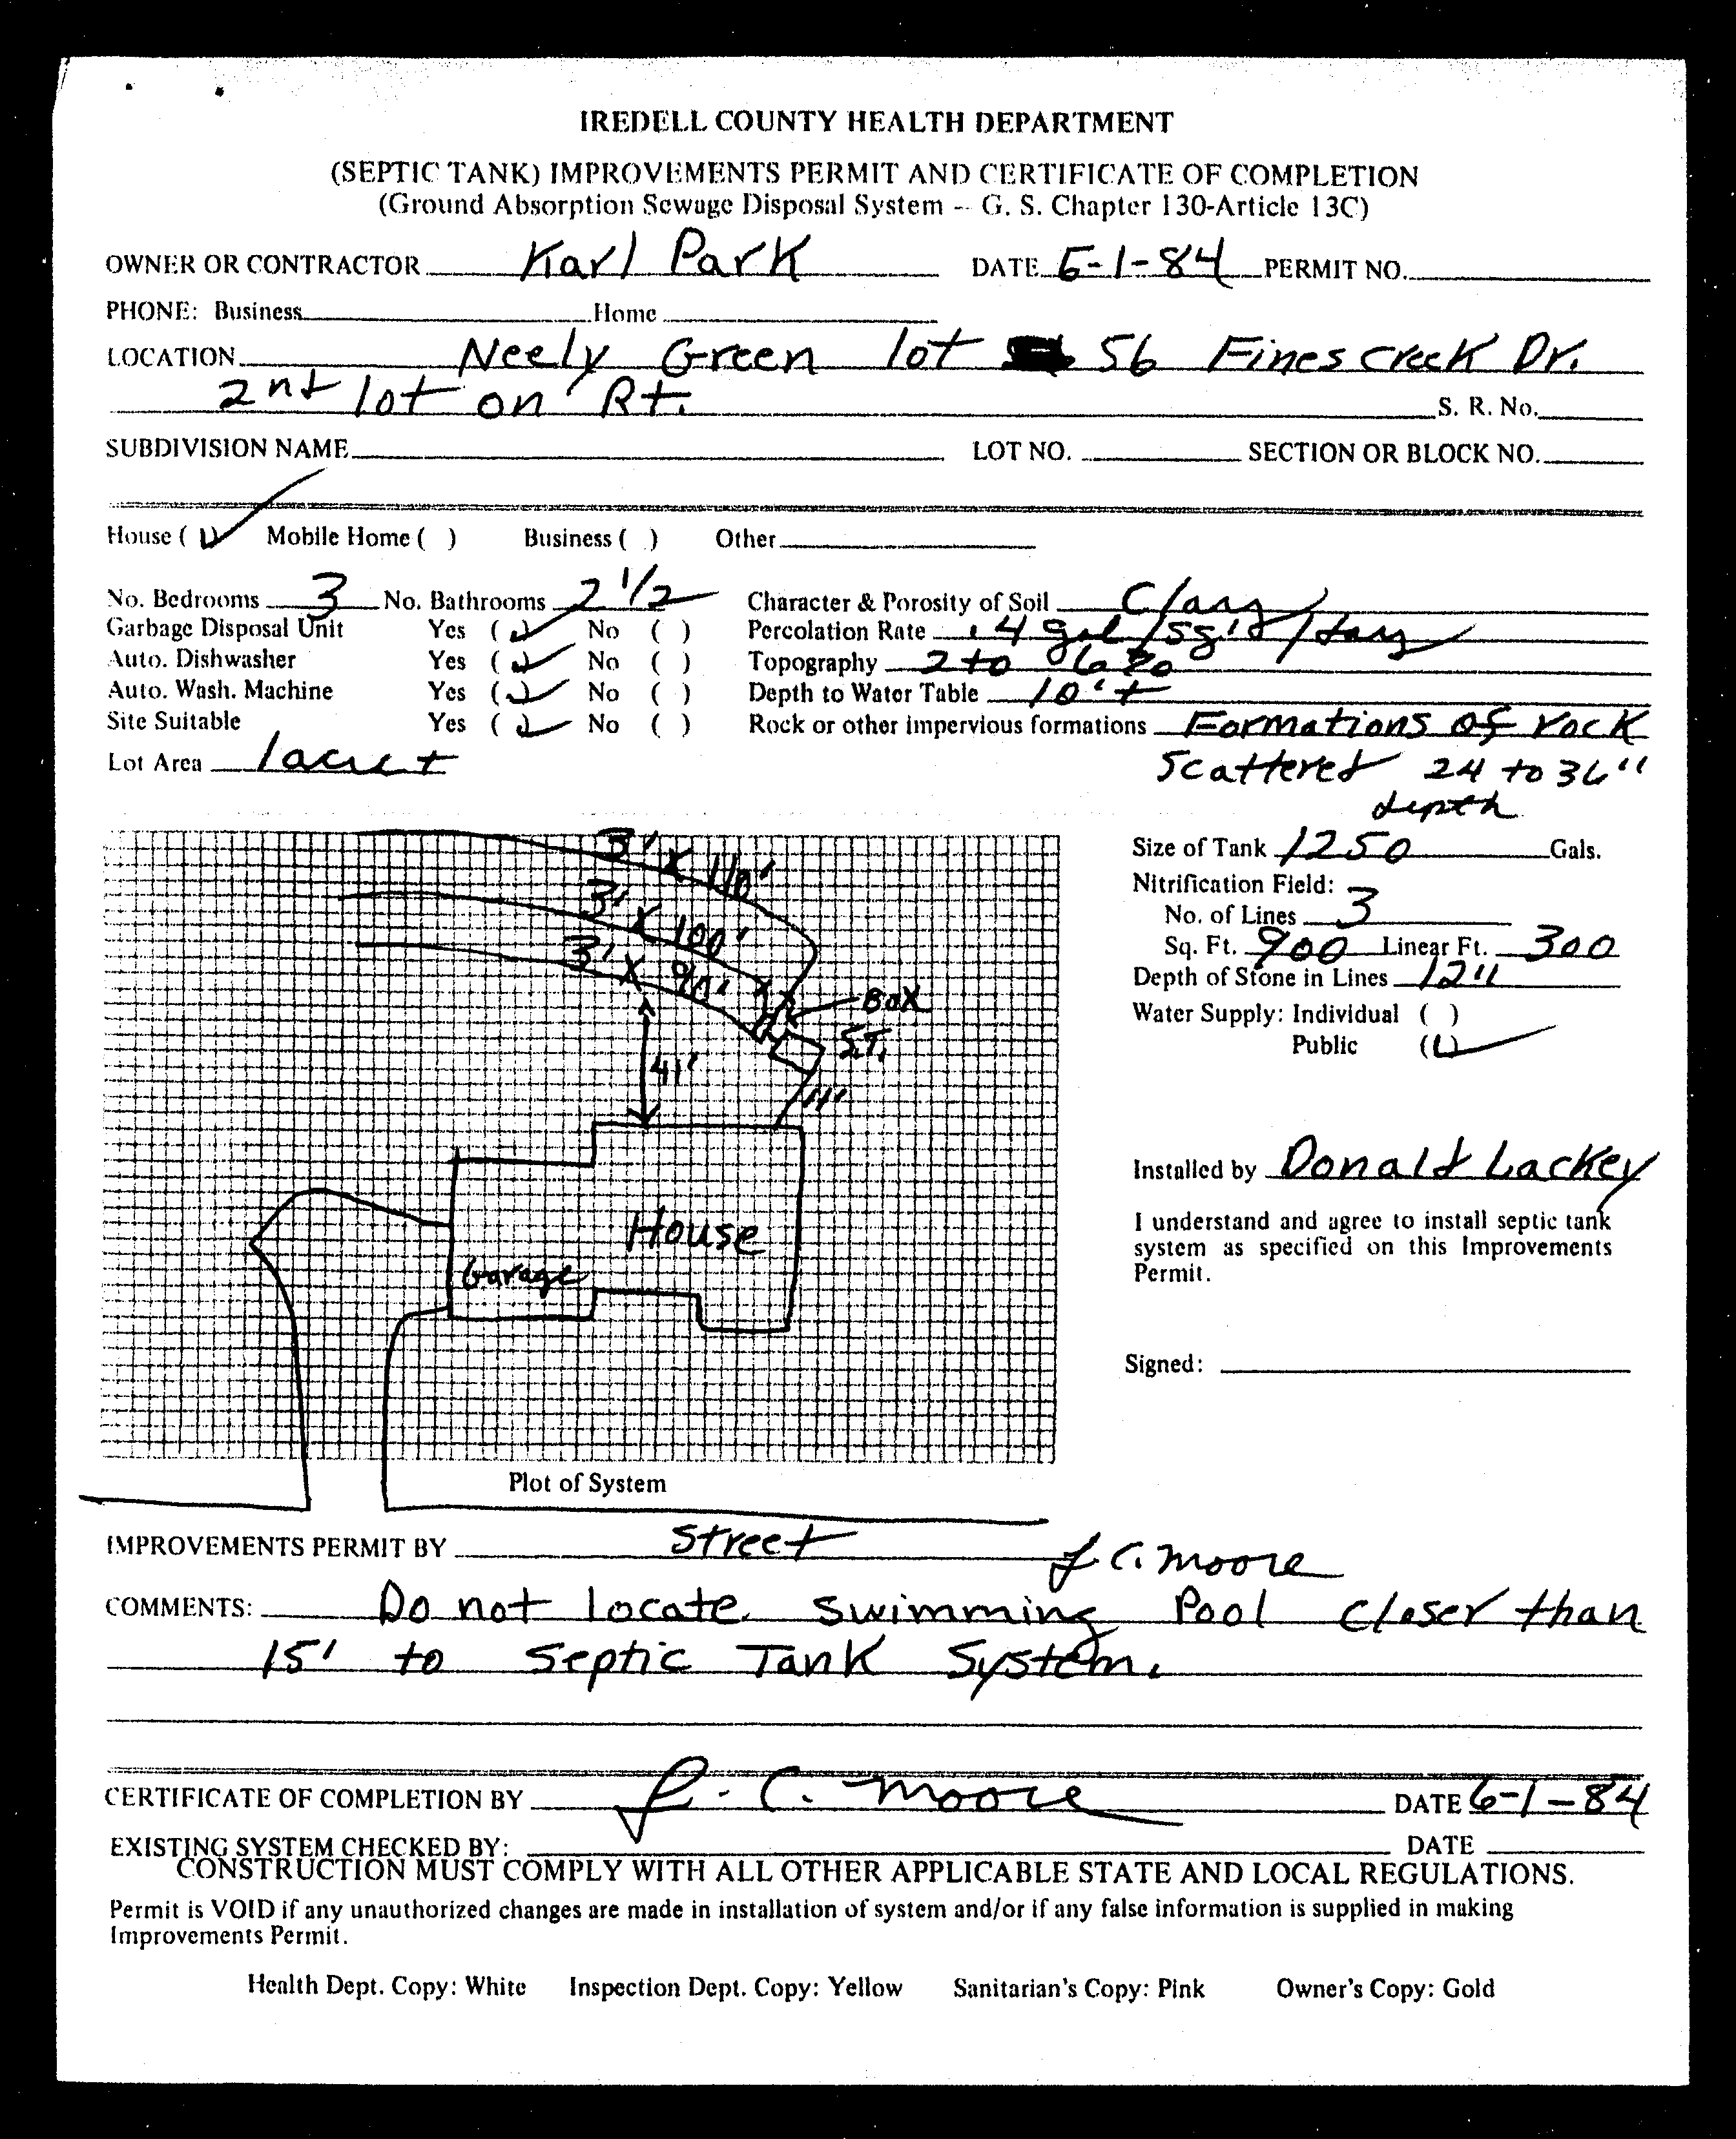 IREDELL COUNTY HEALTH DEPARTMENT
(SEPTIC TANK) IMPROVEMENTS PERMIT AND CERTIFICATE OF COMPLETION
(Ground Absorption Sewage Disposal System -- G. S. Chapter 130-Article 13C)
OWNER OR CONTRACTOR Karl Park DATE 6-1-84 PERMIT NO.
PHONE: Business Home
LOCATION Neely Green lot 56 Fines Creek Dr.
2nd lot on Rt. S. R. No.
SUBDIVISION NAME LOT NO. SECTION OR BLOCK NO.
House (✓) Mobile Home ( ) Business ( ) Other
No. Bedrooms 3 No. Bathrooms 2 1/2 Character & Porosity of Soil Clay
Garbage Disposal Unit Yes (✓) No ( ) Percolation Rate .4 gal/sq'd/day
Auto. Dishwasher Yes (✓) No ( ) Topography 2 to 6%
Auto. Wash. Machine Yes (✓) No ( ) Depth to Water Table 10'+
Site Suitable Yes (✓) No ( ) Rock or other impervious formations Formations of rock
Lot Area 1 acre + Scattered 24 to 36"
depth
3' X 110'
3' X 100'
3' X 90'
BOX
S.T.
41'
11'
House
Garage
Size of Tank 1250 Gals.
Nitrification Field:
No. of Lines 3
Sq. Ft. 900 Linear Ft. 300
Depth of Stone in Lines 12"
Water Supply: Individual ( )
Public (✓)
Installed by Donald Lackey
I understand and agree to install septic tank
system as specified on this Improvements
Permit.
Signed:
Plot of System
Street
IMPROVEMENTS PERMIT BY J. C. Moore
COMMENTS: Do not locate swimming Pool closer than
15' to Septic Tank System.
CERTIFICATE OF COMPLETION BY J. C. Moore DATE 6-1-84
EXISTING SYSTEM CHECKED BY: DATE
CONSTRUCTION MUST COMPLY WITH ALL OTHER APPLICABLE STATE AND LOCAL REGULATIONS.
Permit is VOID if any unauthorized changes are made in installation of system and/or if any false information is supplied in making
Improvements Permit.
Health Dept. Copy: White Inspection Dept. Copy: Yellow Sanitarian's Copy: Pink Owner's Copy: Gold